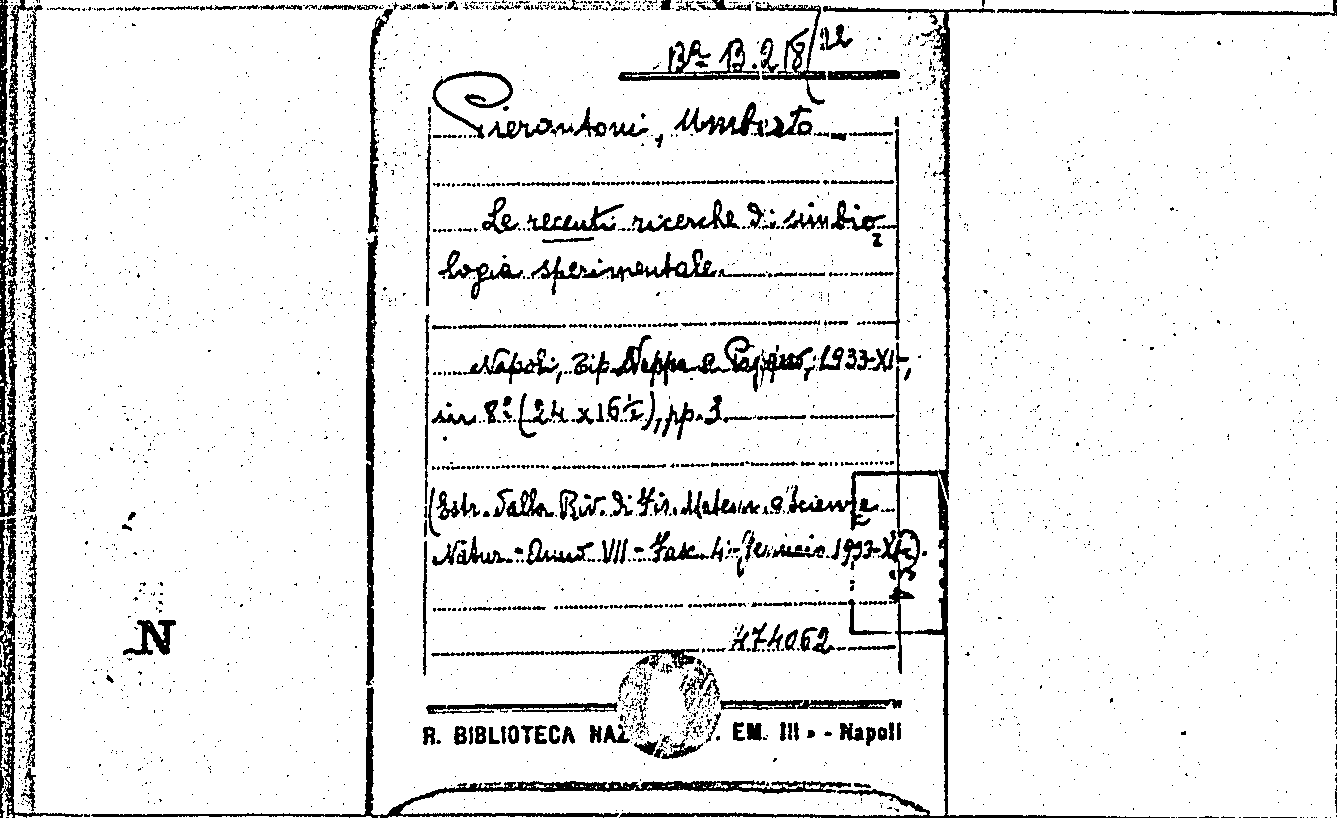 Bª B. 218/22
Pierantoni, Umberto
Le recenti ricerche di simbio
logia sperimentale.
Napoli, Tip. 1933-XI,
in 8º (24 x 16½), pp. 3.
(Estr. dalla Riv. di Fis. Matem. e Scienze
Natur. - Anno VII - Fasc. 4 - Gennaio 1933-XI).
474062
N
R. BIBLIOTECA NAZ EM. III » - Napoli